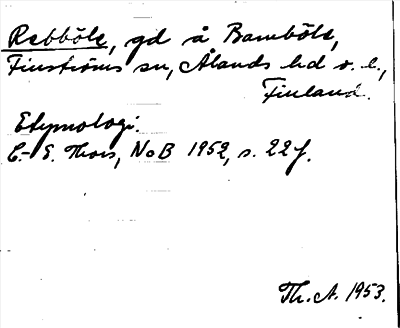 Rebböle, gd å Bamböle,
Finströms sn, Ålands hd o. l.,
Finland.
Etymologi:
C.-E. Thors, NoB 1952, s. 22f.
Th. A. 1953.